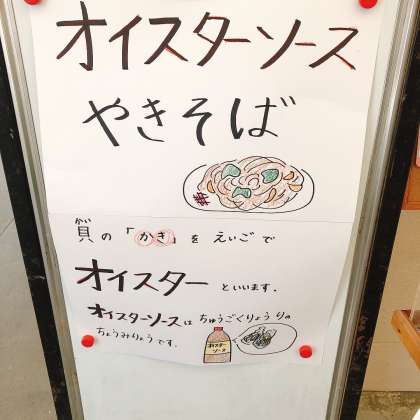 オイスターソース
やきそば
貝の「かき」をえいごで
オイスターといいます.
オイスターソースはちゅうごくりょうりの
ちょうみりょうです.
オイスター
ソース